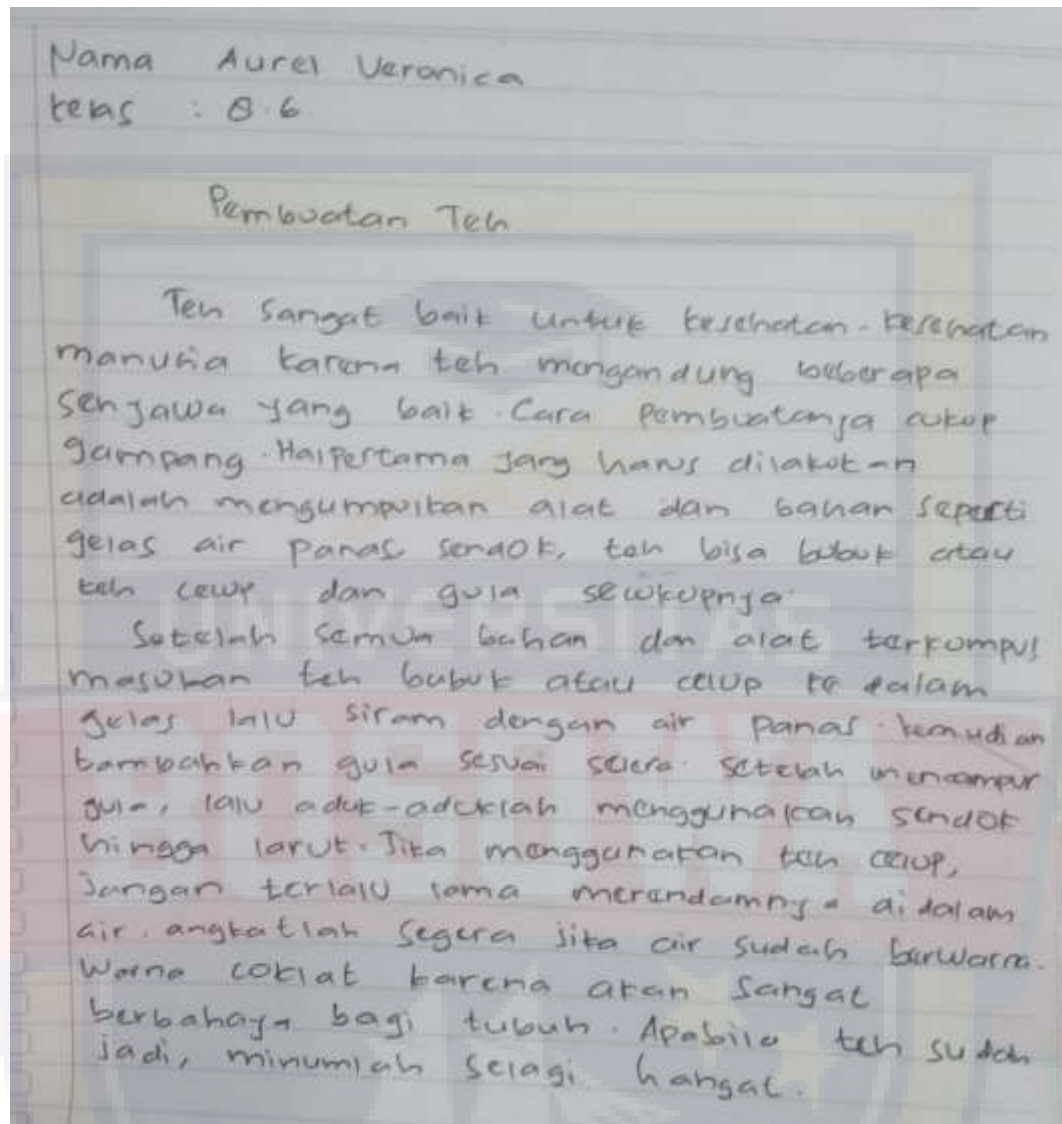 Nama Aurel Veronica
kelas : 8.6
Pembuatan Teh
Teh sangat baik untuk kesehatan-kesehatan
manusia karena teh mengandung beberapa
senjawa yang baik. Cara Pembuatanja cukup
gampang. Hal pertama jang harus dilakukan
adalah mengumpulkan alat dan bahan seperti
gelas air panas sendok, teh bisa bubuk atau
teh celup dan gula secukupnja.
Setelah semua bahan dan alat terkumpul
masukan teh bubuk atau celup ke dalam
gelas lalu siram dengan air panas. kemudian
tambahkan gula sesuai selera. setelah mencampur
gula, lalu aduk-aduklah menggunakan sendok
hingga larut. Jika menggunakan teh celup,
Jangan terlalu lama merendamnya didalam
air. angkatlah segera jika air sudah berwarna-
warna coklat karena akan sangat
berbahaya bagi tubuh. Apabila teh sudah
jadi, minumlah selagi hangat.
UNIVERSITAS
BOSOWA